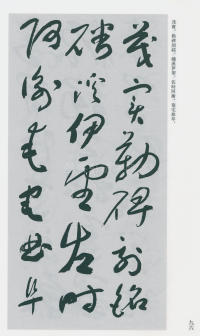 茂實，勒碑刻銘。磻溪伊尹，佐時阿衡。奄宅曲阜，
茂實勒碑刻銘
磻溪伊尹佐時
阿衡奄宅曲阜
九六